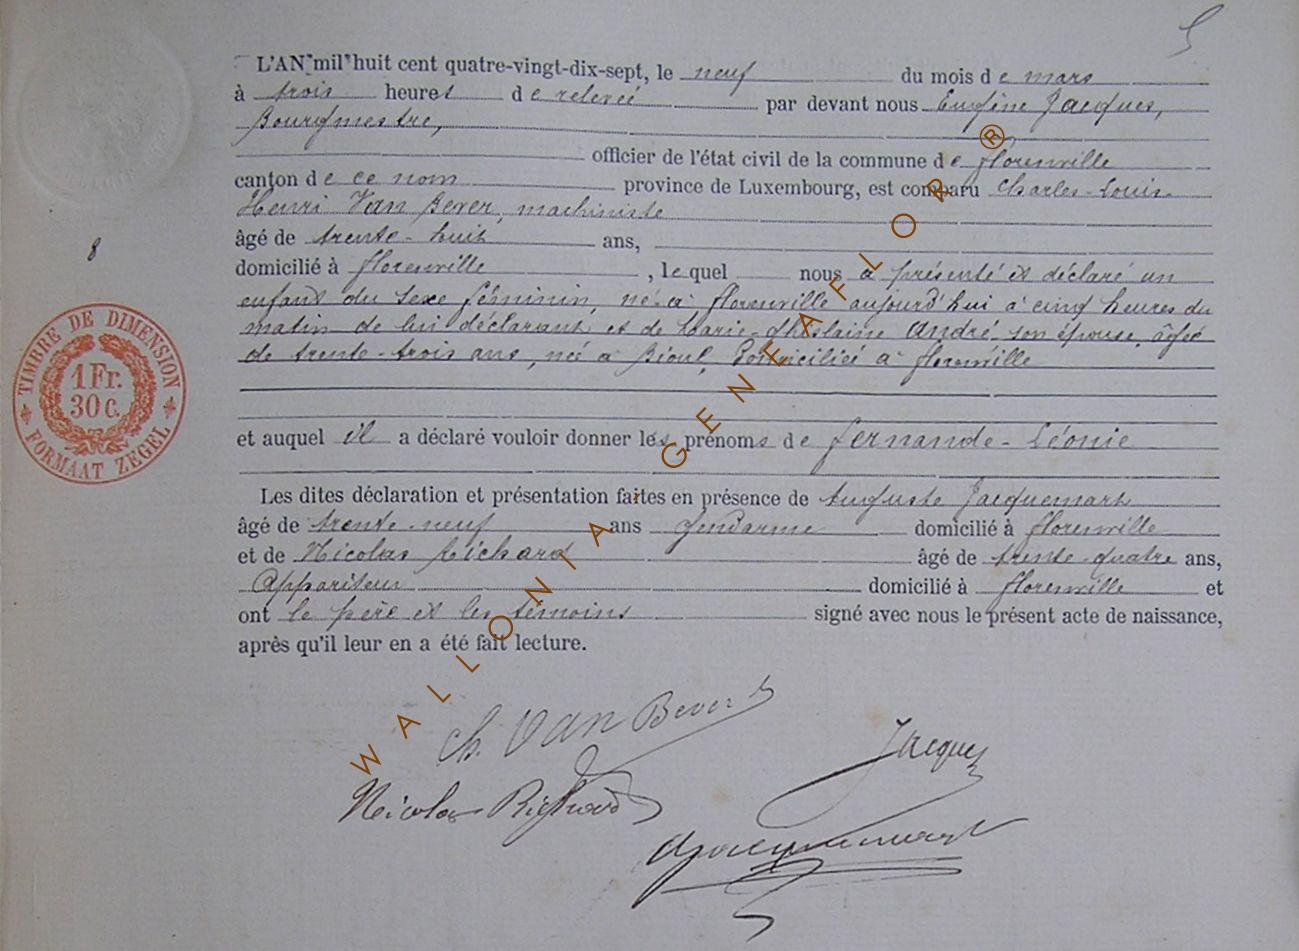 5
L'AN mil huit cent quatre-vingt-dix-sept, le neuf du mois de mars
à trois heures de relevée par devant nous Eugène Jacques,
Bourgmestre,
officier de l'état civil de la commune de Florenville
canton de ce nom province de Luxembourg, est comparu Charles-Louis-
Henri Van Bever, machiniste
8
âgé de trente-huit ans,
domicilié à Florenville, lequel nous a présenté et déclaré un
enfant du sexe féminin, né à Florenville aujourd'hui à cinq heures du
matin de lui déclarant et de Marie-Ghislaine André son épouse, âgée
de trente-trois ans, née à Bioul, domiciliée à Florenville
et auquel il a déclaré vouloir donner les prénoms de Fernande-Léonie
Les dites déclaration et présentation faites en présence de Auguste Jacquemart
âgé de trente-neuf ans gendarme domicilié à Florenville
et de Nicolas Richard âgé de trente-quatre ans,
Appariteur domicilié à Florenville et
ont le père et les témoins signé avec nous le présent acte de naissance,
après qu'il leur en a été fait lecture.
Ch. Van Bever
Jacques
Nicolas Richard
AJacquemart
TIMBRE DE DIMENSION
1 Fr.
30 C.
FORMAAT ZEGEL
WALLONIA-GENEAFLOR®